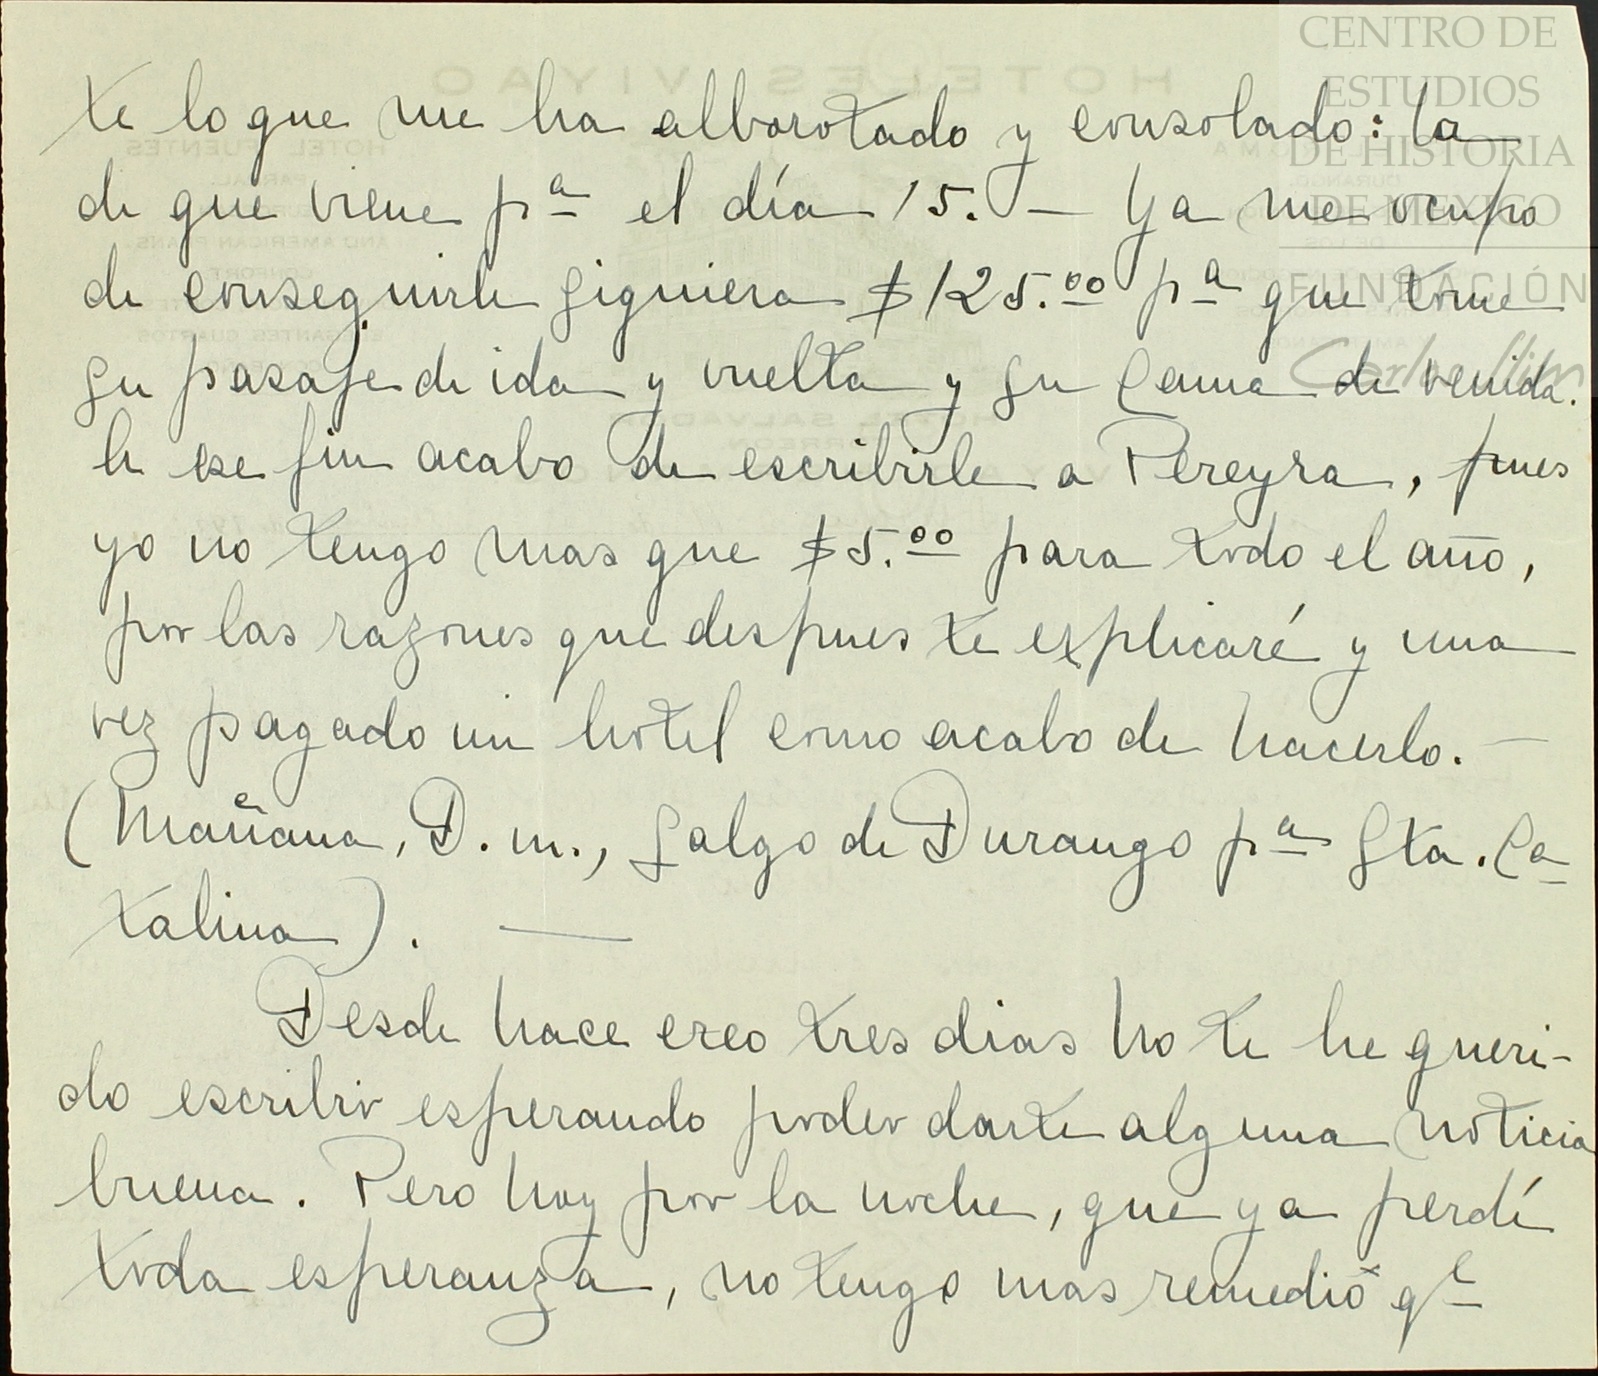 CENTRO DE
ESTUDIOS
DE HISTORIA
DE MEXICO
FUNDACIÓN
Carlos Slim
te lo que me ha alborotado y consolado: la
de que viene pª el día 15. — Ya me ocupo
de conseguirle siquiera $125.00 pª que tome
su pasaje de ida y vuelta y su cama de venida.
A ese fin acabo de escribirle a Pereyra, pues
yo no tengo mas que $5.00 para todo el año,
por las razones que despues te explicaré y una
vez pagado mi hotel como acabo de hacerlo. —
(Mañana, D. m., salgo de Durango pª Sta. Ca-
talina). —
Desde hace creo tres dias no te he queri-
do escribir esperando poder darte alguna noticia
buena. Pero hoy por la noche, que ya perdí
toda esperanza, no tengo mas remedio qe